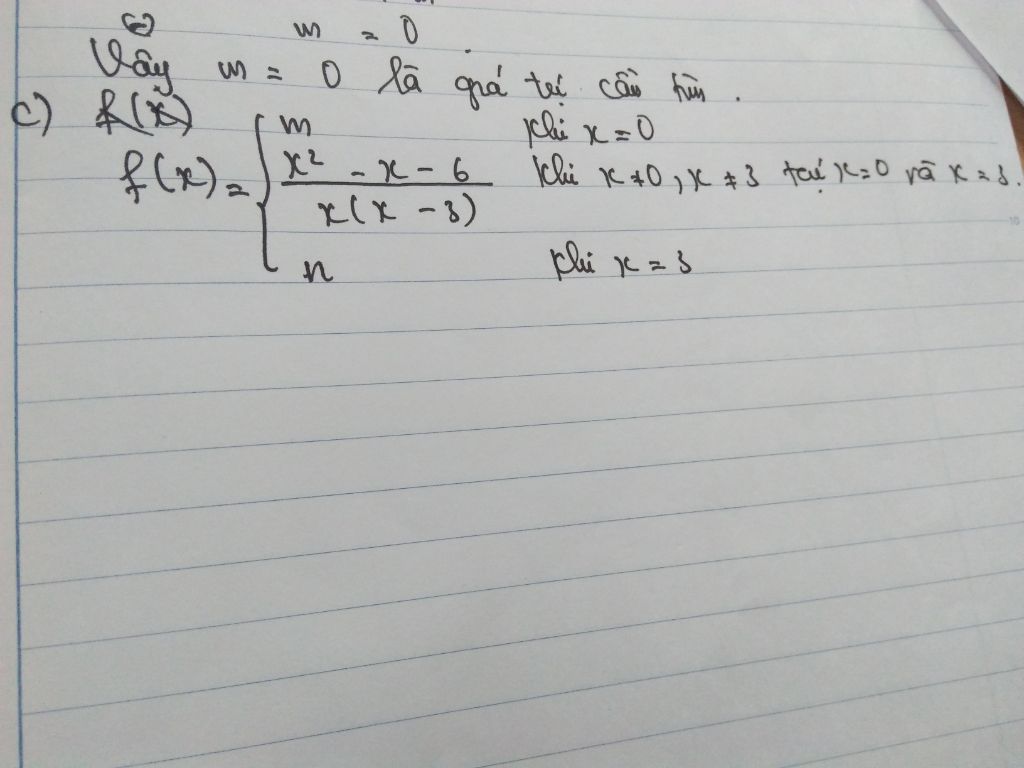 ⇔ m = 0
Vậy m = 0 là giá trị cần tìm.
c) f(x)
f(x) = { m khi x = 0
x² - x - 6 / x(x - 3) khi x ≠ 0, x ≠ 3 tại x = 0 và x = 3.
n khi x = 3